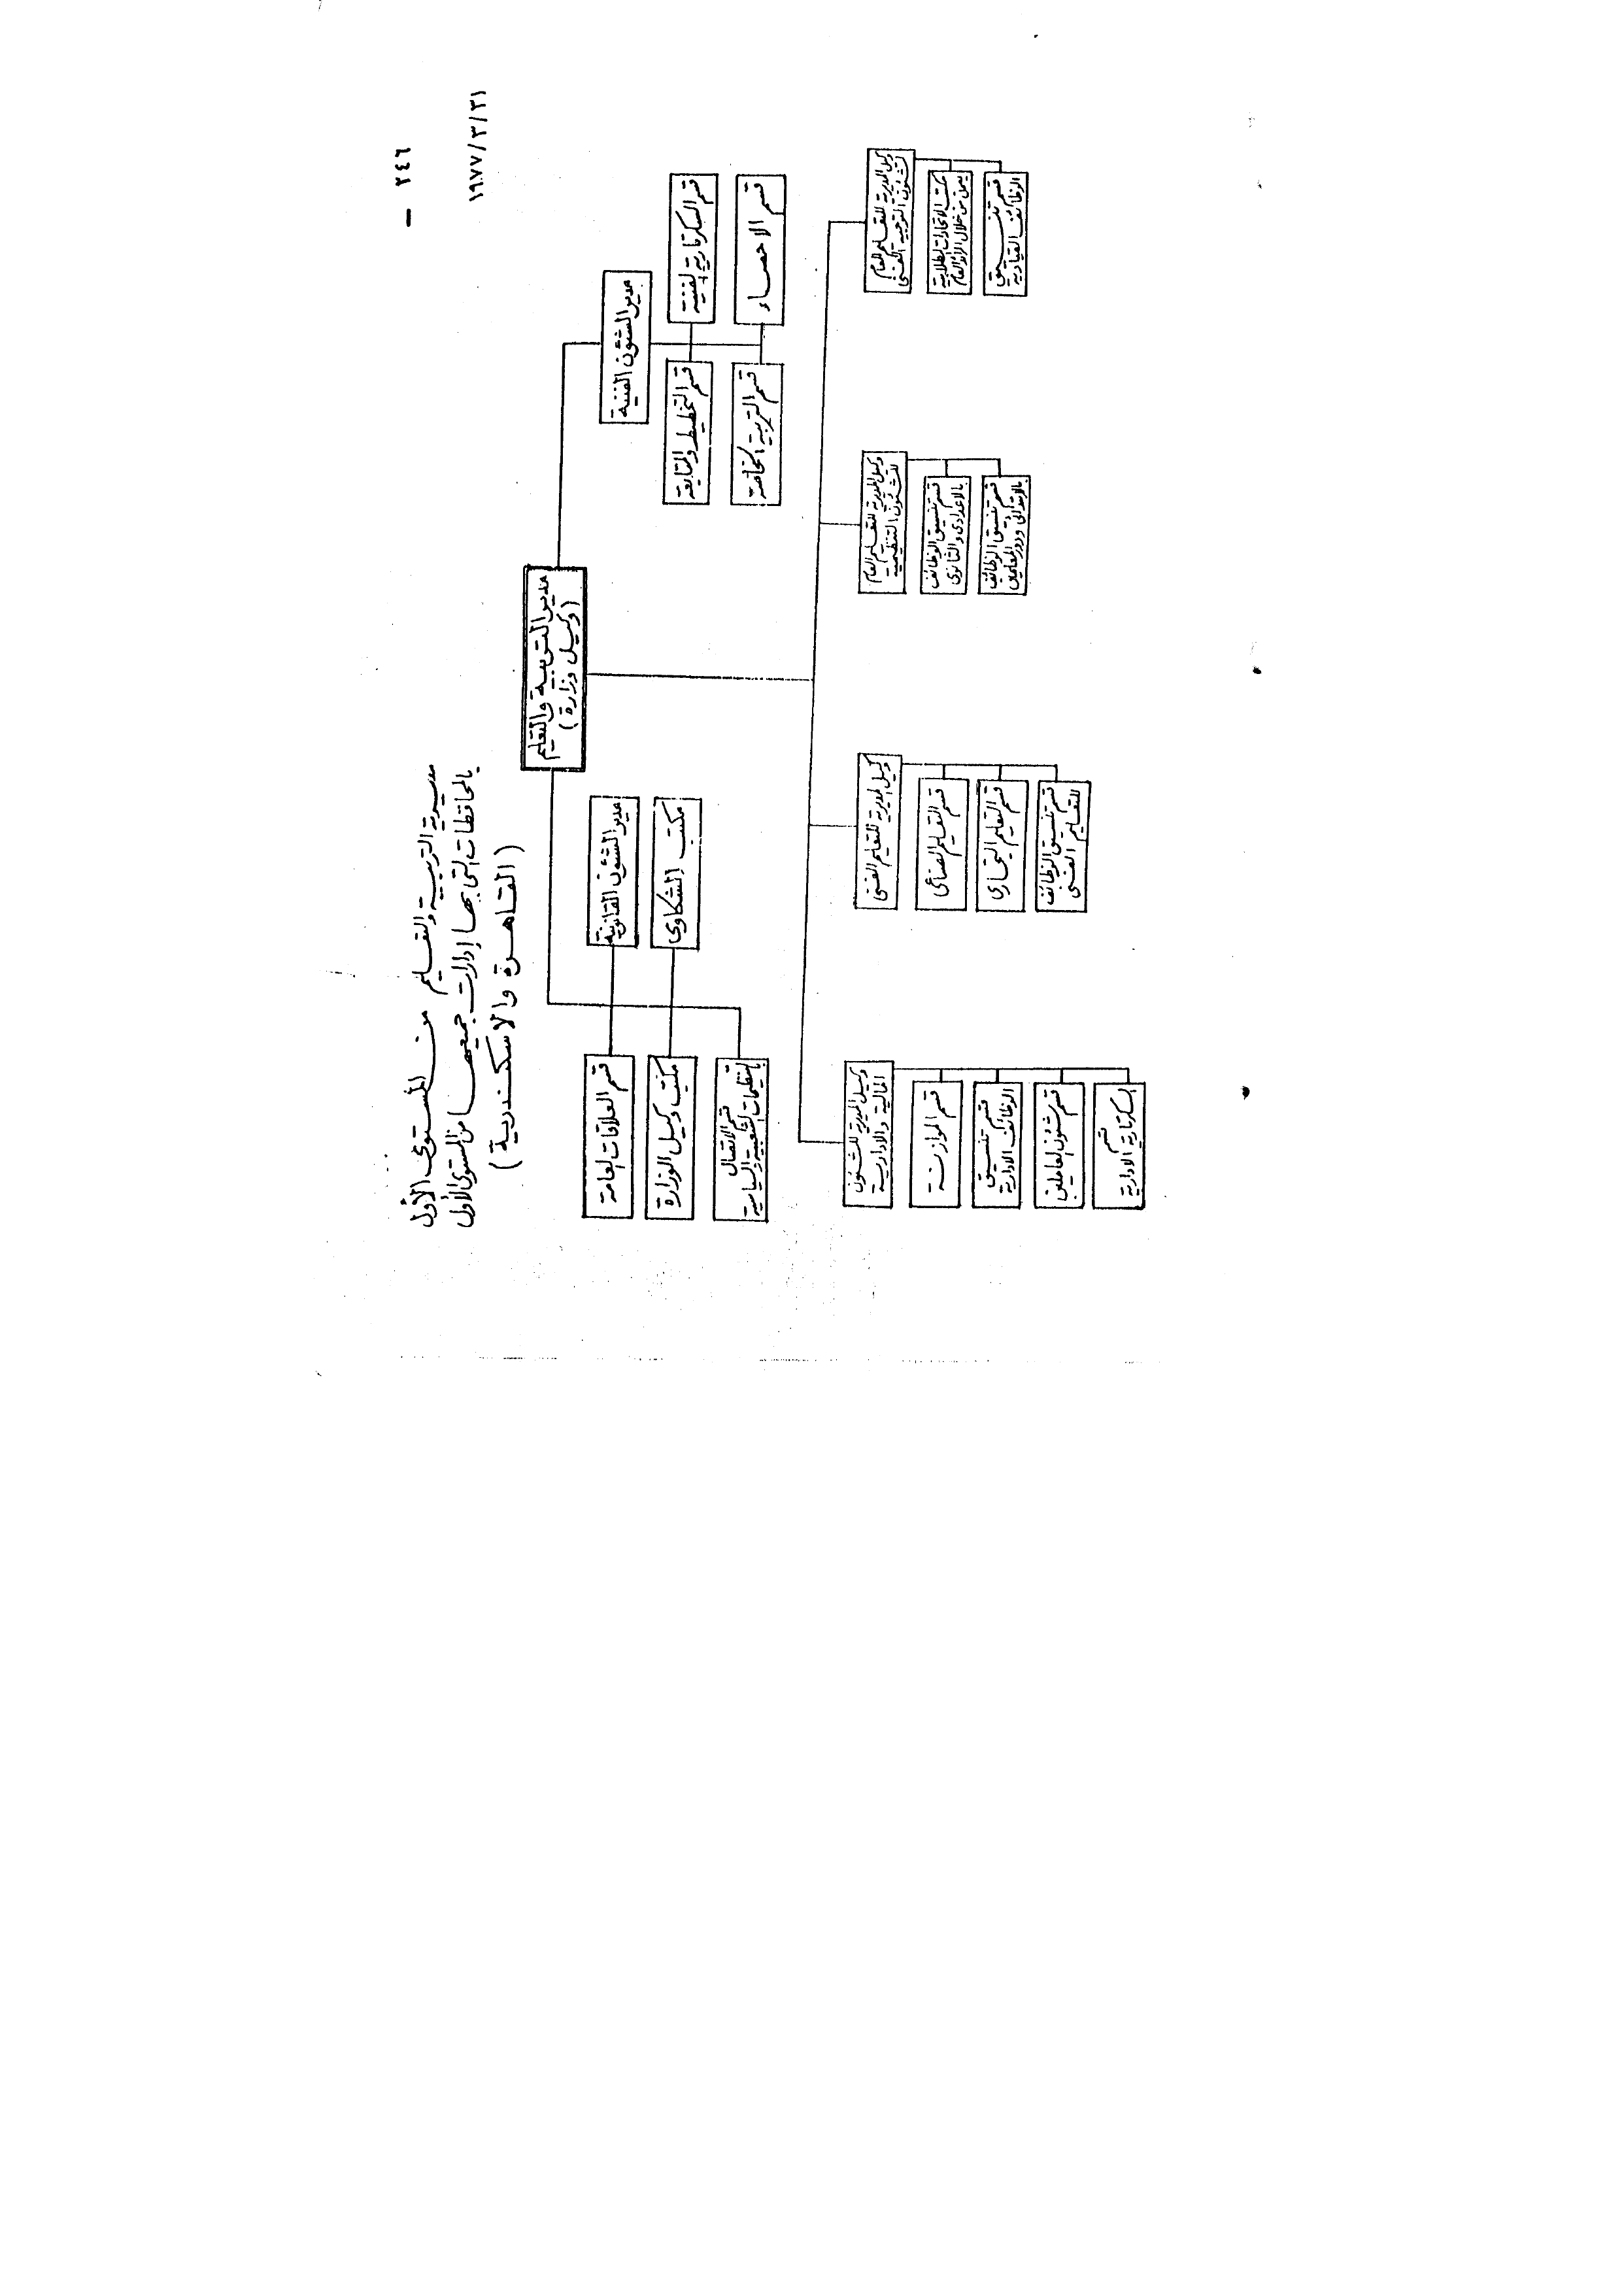 — ٢٤٦
١٩٧٧/٣/٣١
مديرية التربية والتعليم من المستوى الأول
بالمحافظات التى بها إدارات جميعها من المستوى الأول
(القاهرة والاسكندرية)
مدير التربية والتعليم
(وكيل وزارة)
مدير الشئون الفنية
قسم السكرتارية الفنية
قسم التخطيط والمتابعة
قسم الاحصاء
قسم التربية الخاصة
مدير الشئون القانونية
قسم العلاقات العامة
مكتب الشكاوى
مكتب وكيل الوزارة
قسم الاتصال
بالتنظيمات الشعبية والسياسية
وكيل المديرية للتعليم العام
لشئون التوجيه الفنى
مكتب الاتحادات الطلابية
يعمل من خلال الرائد العام
قسم تنسيق
الوظائف القيادية
وكيل المديرية للتعليم العام
للشئون التنظيمية
قسم تنسيق الوظائف
بالاعدادى والثانوى
قسم تنسيق الوظائف
بالابتدائى ودور المعلمين
وكيل المديرية للتعليم الفنى
قسم التعليم الصناعى
قسم التعليم التجارى
قسم تنسيق الوظائف
للتعليم الفنى
وكيل المديرية للشئون
المالية والادارية
قسم الموازنة
قسم تنسيق
الوظائف الادارية
قسم شئون العاملين
قسم
السكرتارية الادارية